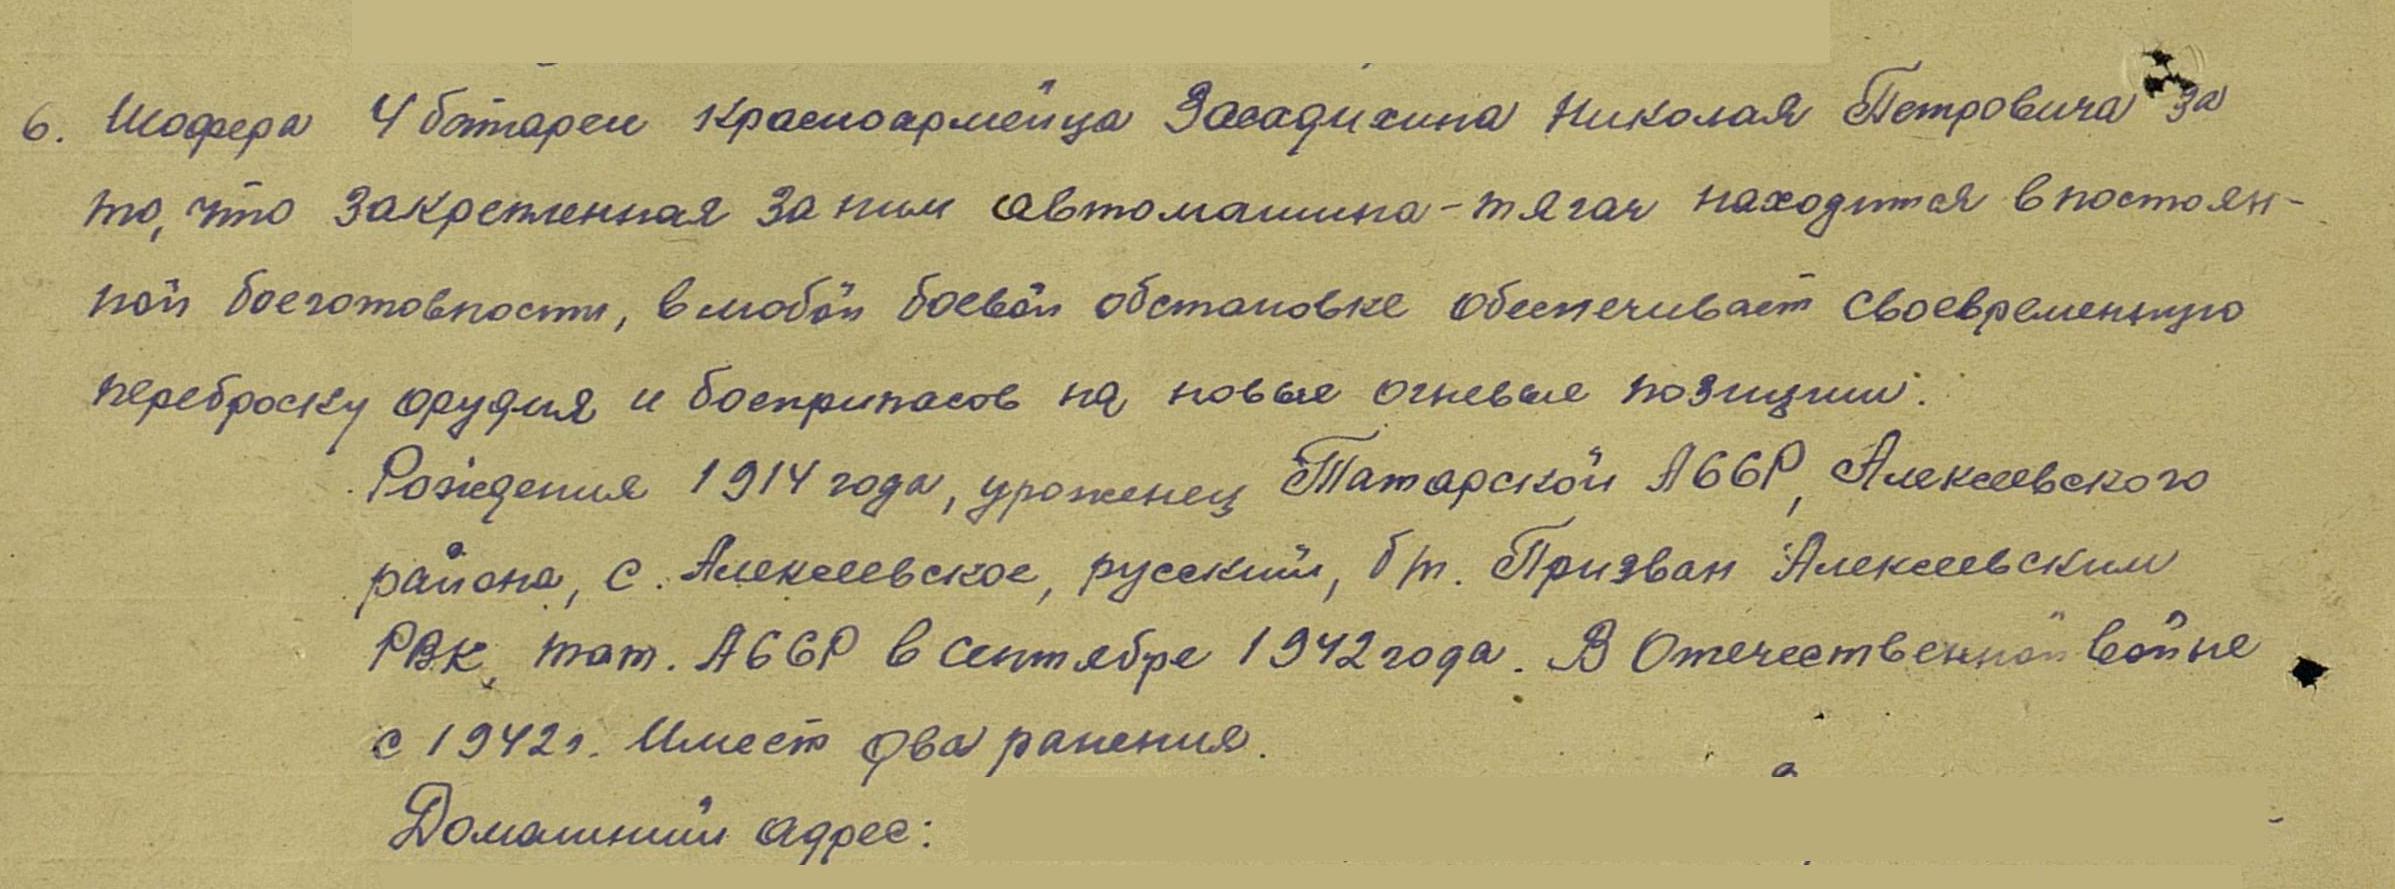 6. Шофера 4 батареи красноармейца Засадихина Николая Петровича за
то, что закрепленная за ним автомашина-тягач находится в постоян-
ной боеготовности, в любой боевой обстановке обеспечивает своевременную
переброску орудия и боеприпасов на новые огневые позиции.
Рождения 1914 года, уроженец Татарской АССР, Алексеевского
района, с. Алексеевское, русский, б/п. Призван Алексеевским
РВК, тат. АССР в сентябре 1942 года. В Отечественной войне
с 1942 г. Имеет два ранения.
Домашний адрес: